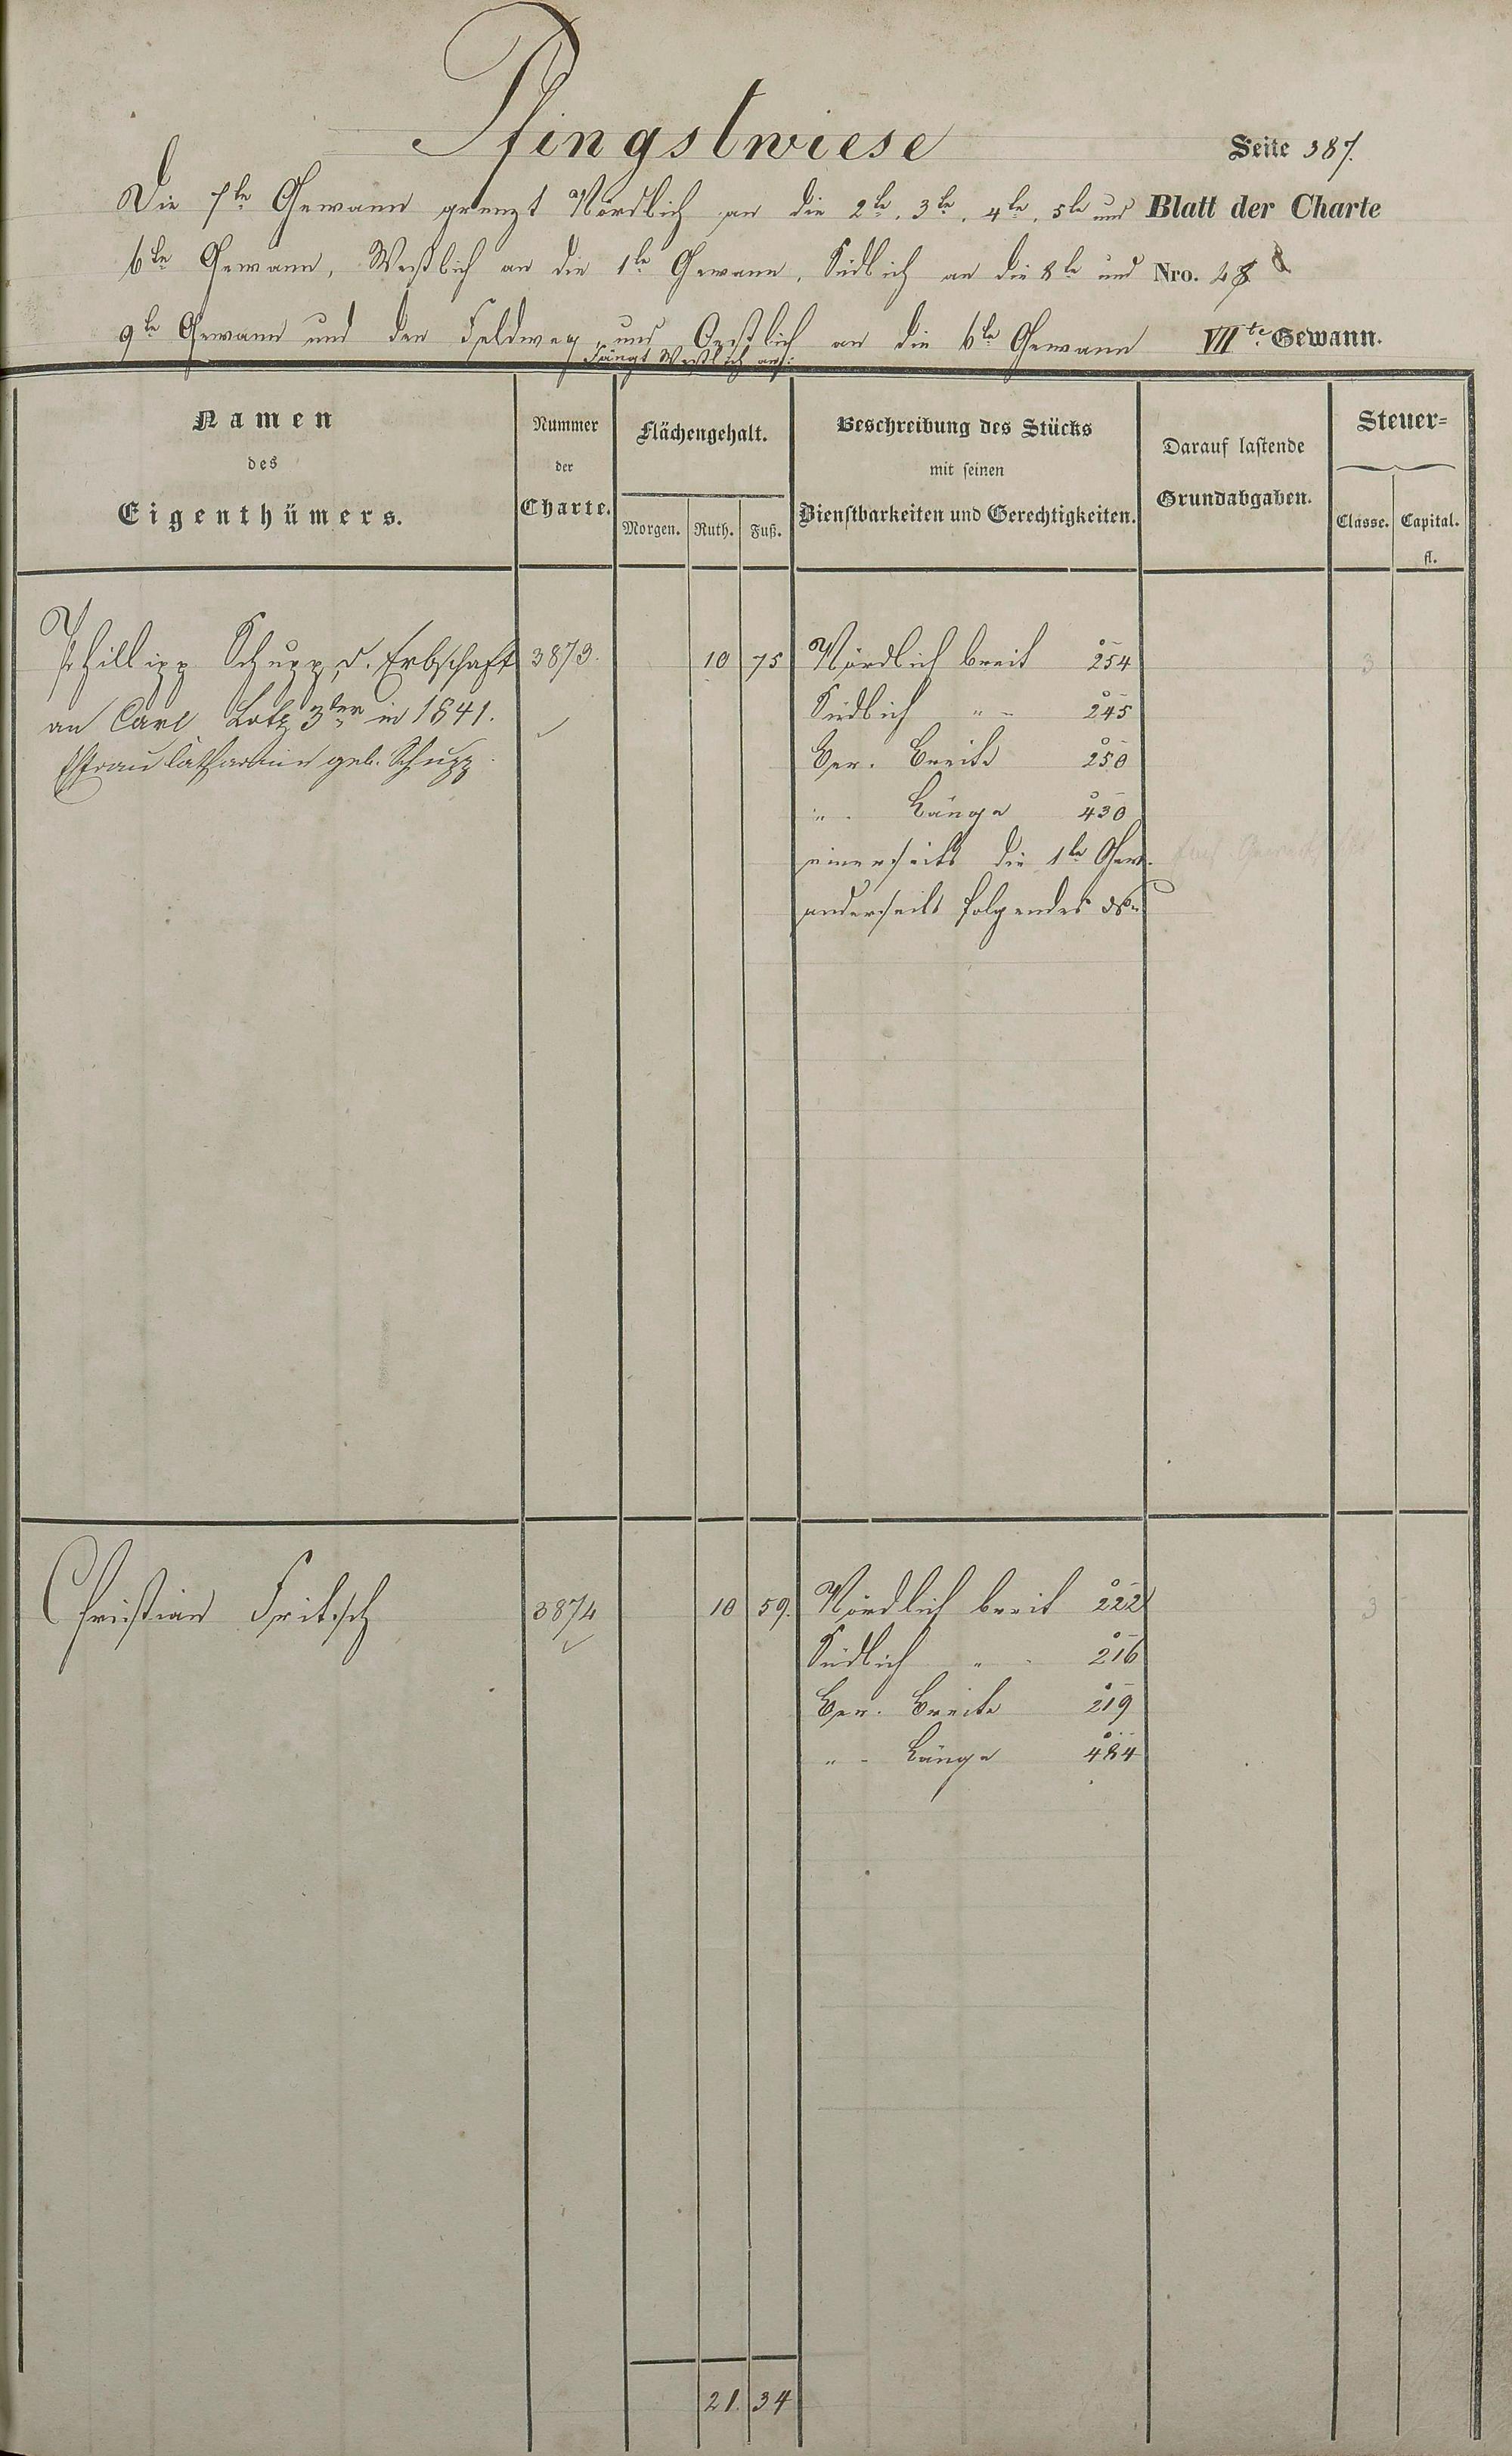 Pfingstwiese
Seite 387.
Die 7te Gewann grenzt Nördlich an die 2te, 3te, 4te, 5te und
Blatt der Charte
6te Gewann, Westlich an die 1te Gewann, Südlich an die 8te und
Nro. 48
9te Gewann und den Feldweg, und Oestlich an die 6te Gewann
VIIte Gewann.
Fängt Westlich an:
Namen
des
Eigenthümers.
Nummer
der
Charte.
Flächengehalt.
Morgen. Ruth. Fuß.
Beschreibung des Stücks
mit seinen
Dienstbarkeiten und Gerechtigkeiten.
Darauf lastende
Grundabgaben.
Steuer-
Classe. Capital.
fl.
Phillipp Schupp, d. Erbschaft 3873. 10 75 Nördlich breit 254 3
an Carl Lotz 3ter in 1841. Südlich " - 245
Ehfrau Catharina geb. Schupp. Ber. Breite 250
" - Länge 430
einerseits die 1te Gew.
anderseits folgendes
Christian Fritsch 3874 10 59. Nördlich breit 222 3
Südlich " - 216
Ber. Breite 219
" - Länge 484
21. 34